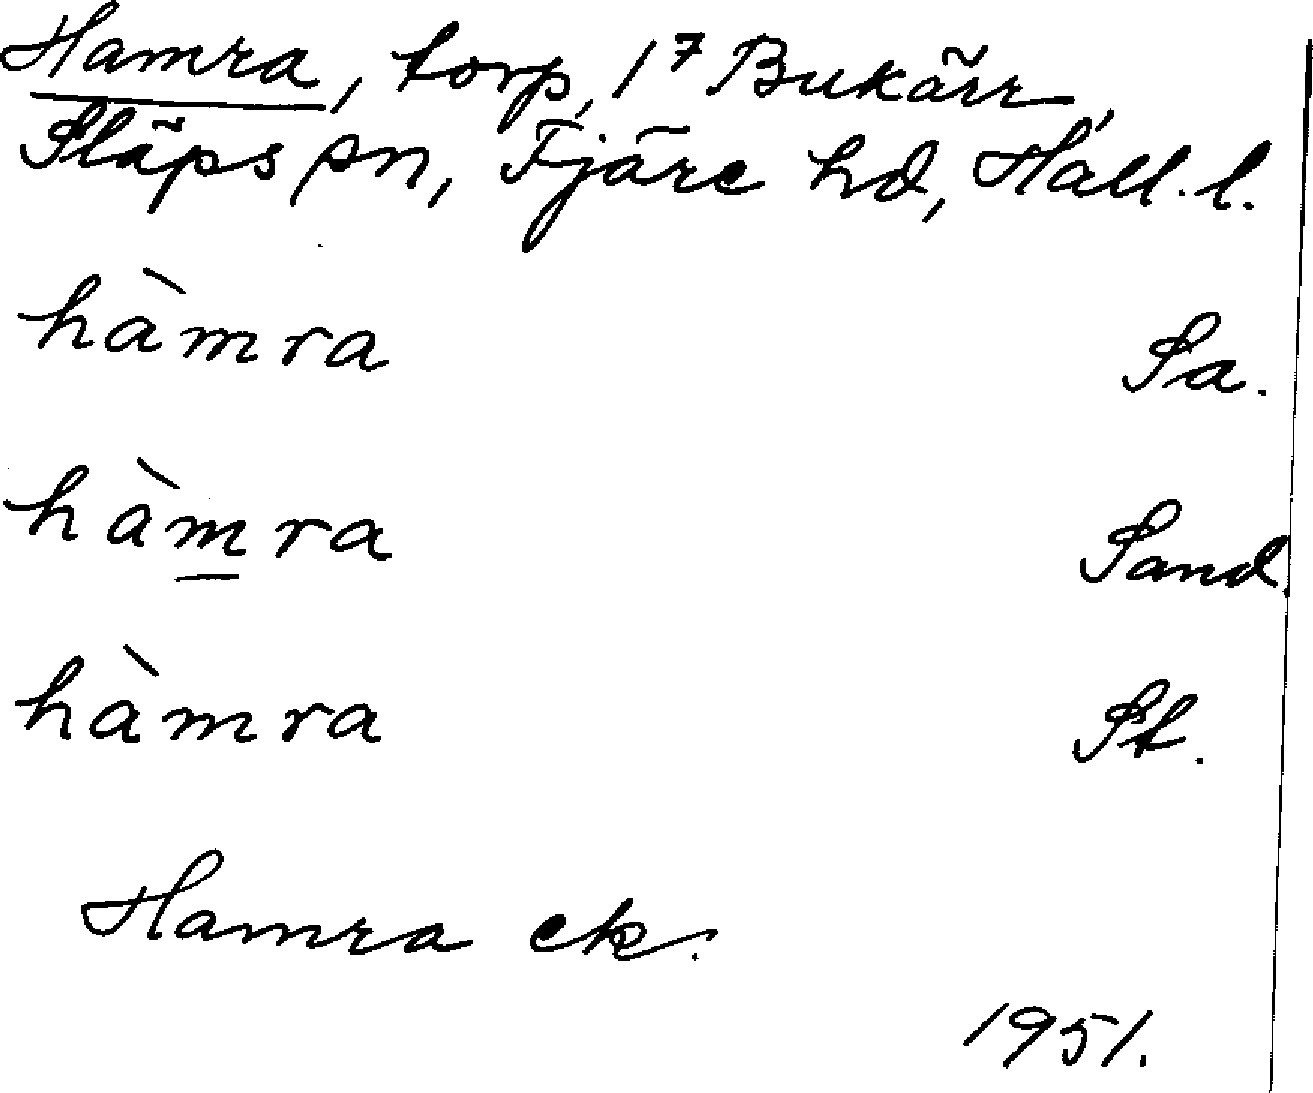 Hamra, torp, 1⁷ Bukärr,
Släps sn, Fjäre hd, Hall. l.
hàmra Sa.
hàm̲ra Sand.
hàmra St.
Hamra ek.
1951.